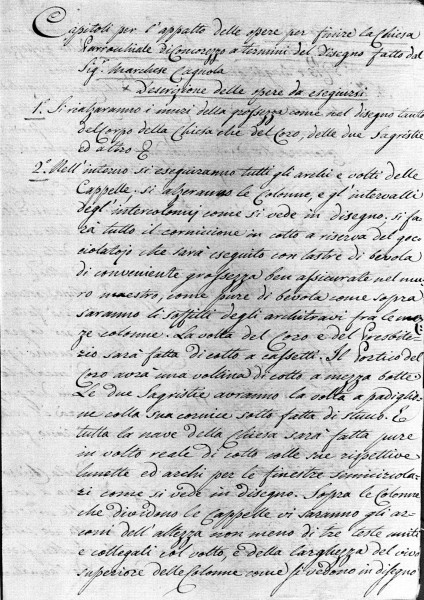 Capitoli per l'appatto delle opere per finire la Chiesa
Parrocchiale di Concorezzo a termini del disegno fatto dal
Sig.r Marchese Cagnola
Descrizione delle opere da eseguirsi
1.o Si rialzaranno i muri della grossezza come nel disegno tanto
del Corpo della Chiesa che del Coro, delle due Sagristie
ed altro
2.o Nell'interno si eseguiranno tutti gli archi e volti delle
Cappelle. si alzeranno le Colonne, e gl'intervalli
degl'intercolonnj come si vede in disegno. si fa
rà tutto il cornicione in cotto a riserva del goc
ciolatojo che sarà eseguito con lastre di bevola
di conveniente grossezza ben assicurate nel mu
ro maestro, come pure di bevola come sopra
saranno li soffitti degli architravi fra le mez
ze colonne. La volta del Coro e del Presbite
rio sarà fatta di cotto a cassetti. Il portico del
Coro avrà una voltina di cotto a mezza botte
Le due Sagristie avranno la volta a padiglio
ne colla sua cornice sotto fatta di stucco. E
tutta la nave della Chiesa sarà fatta pure
in volto reale di cotto colle sue rispettive
lunette ed archi per le finestre simicircola
ri come si vede in disegno. Sopra le Colonne
che dividono le Cappelle vi saranno gli ar
coni dell'altezza non meno di tre teste uniti
e collegati col volto, e della larghezza del vivo
superiore delle Colonne come si vedono in disegno